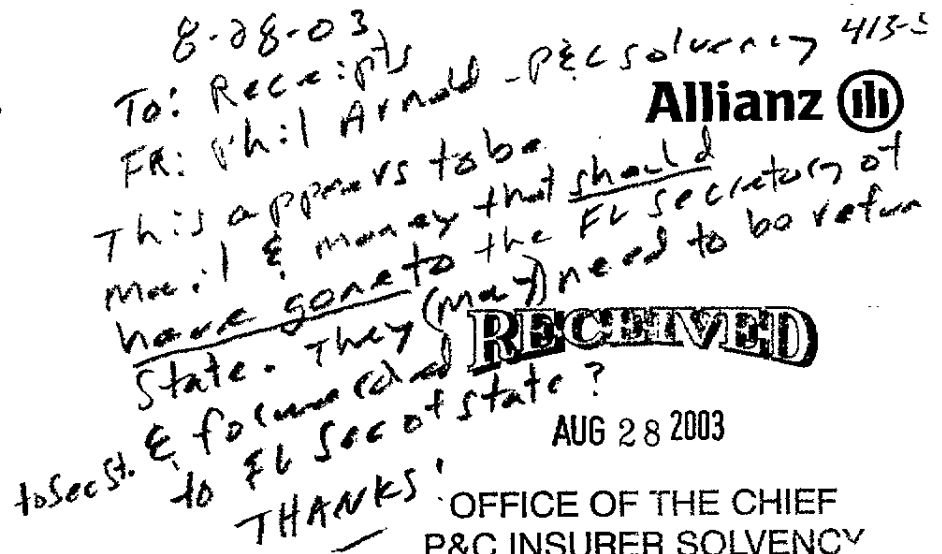 8-28-03
To: Receipts
FR: Phil Arnold - P&C solvency 413-5
Allianz
This appears to be
mail & money that should
have gone to the FL Secretary of
State. They (may) need to be return
to Sec St. & forwarded
to FL Sec of State?
THANKS!
RECEIVED
AUG 28 2003
OFFICE OF THE CHIEF
P&C INSURER SOLVENCY